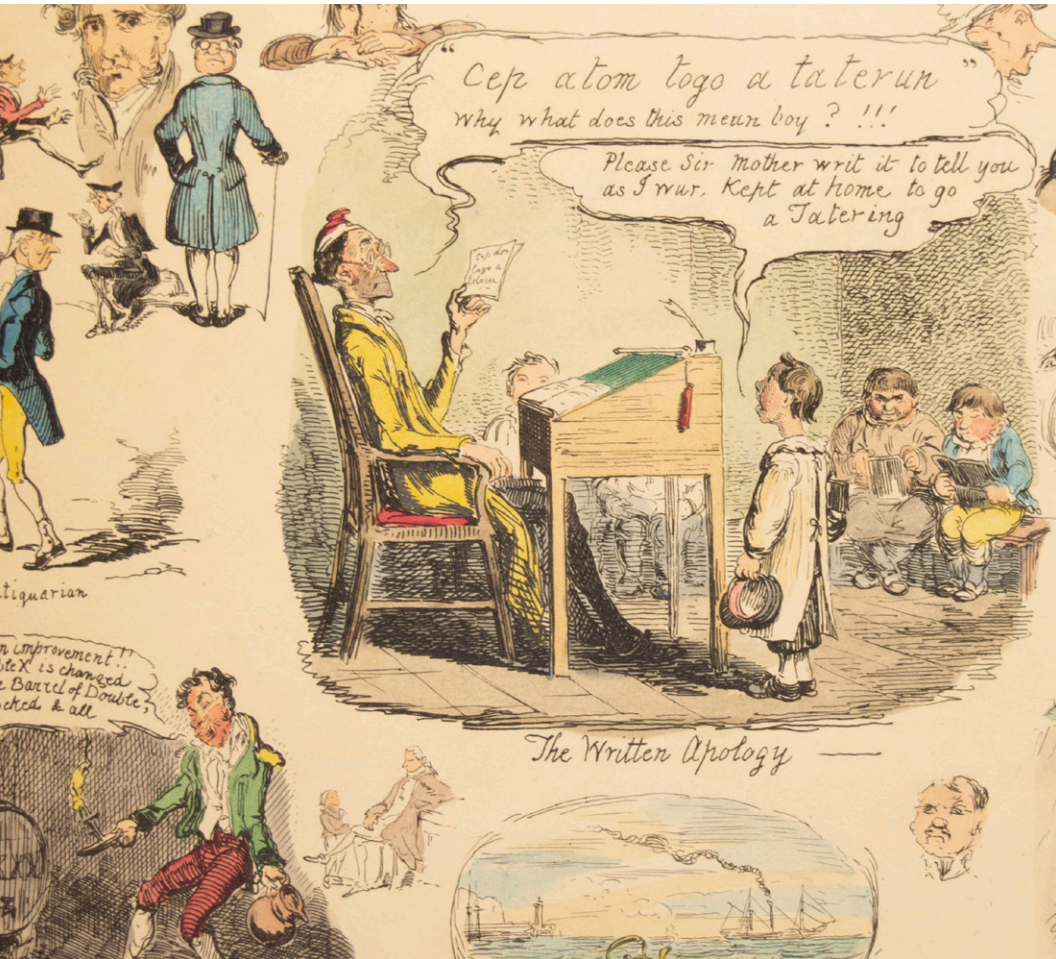 “Cep atom togo a taterun”
Why what does this mean boy ? !!!
Please Sir Mother writ it to tell you
as I wur, Kept at home to go
a Tatering
Cep atom
togo a
taterun
tiquarian
n improvement !!
ble X is changed
e Barrel of Double,
cked & all
XXX
The Written Apology